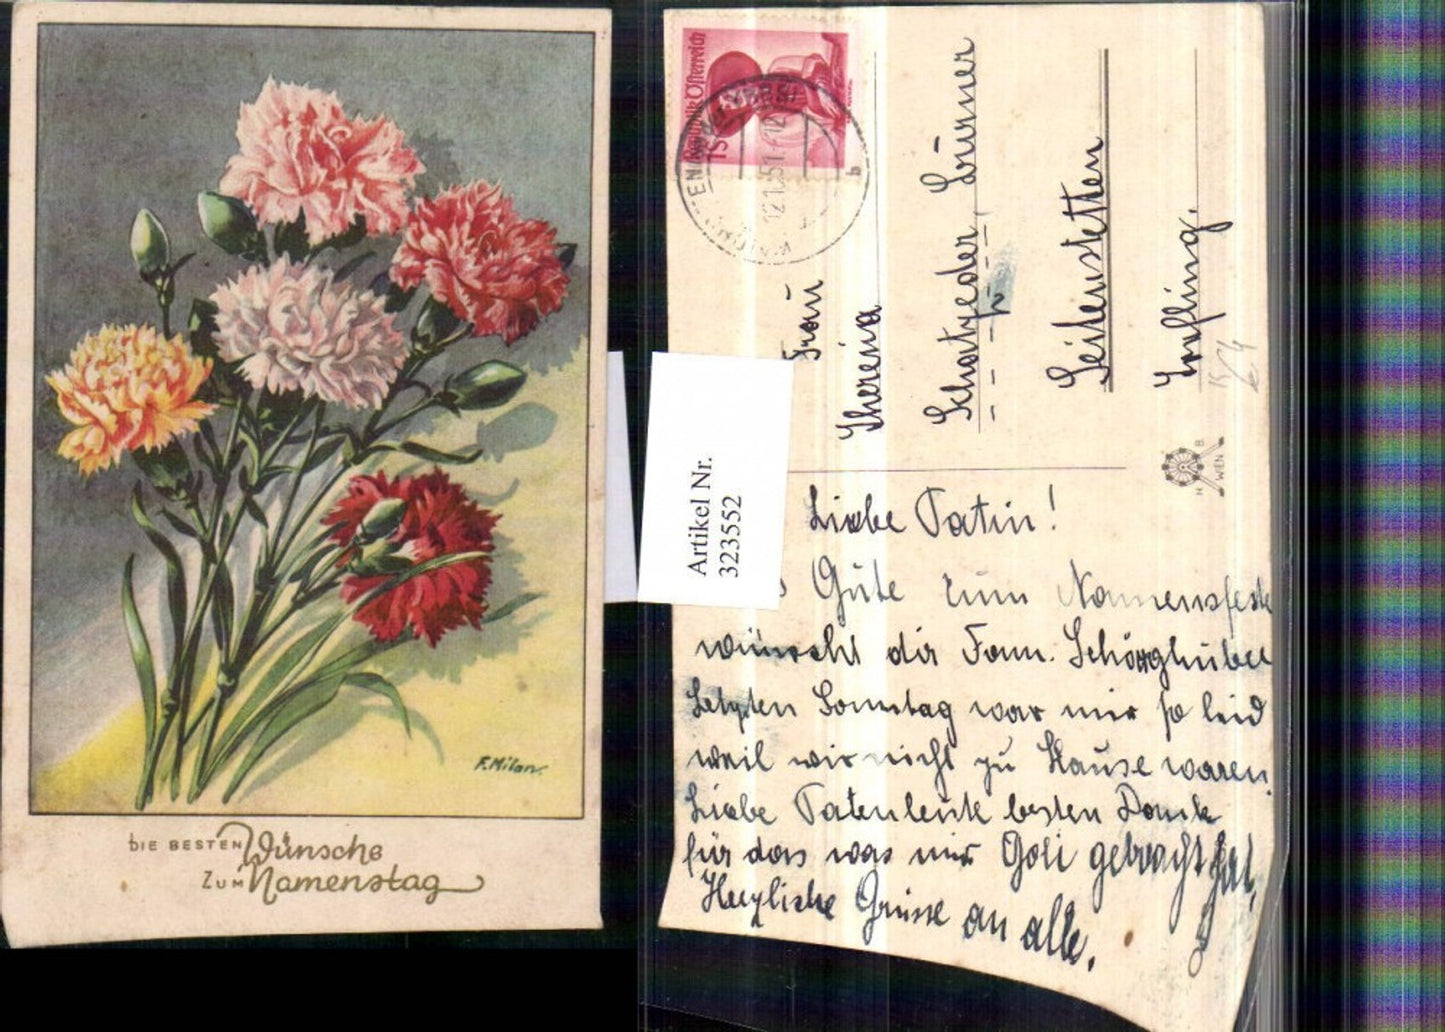 F. Milan.
DIE BESTEN Wünsche
ZUM Namenstag
Artikel Nr.
323552
Republik Österreich
1S
12.1.51.-12
b
Frau
Theresia
Lünner
Seitenstetten
H B
WIEN
Liebe Patin!
Gute zum Namensfeste
wünscht dir Fam. Schörghuber
Letzten Sonntag war mir so leid
weil wir nicht zu Hause waren.
Liebe Patenleute besten Dank
für das was mir Goli gebracht hat.
Herzliche Grüsse an alle.